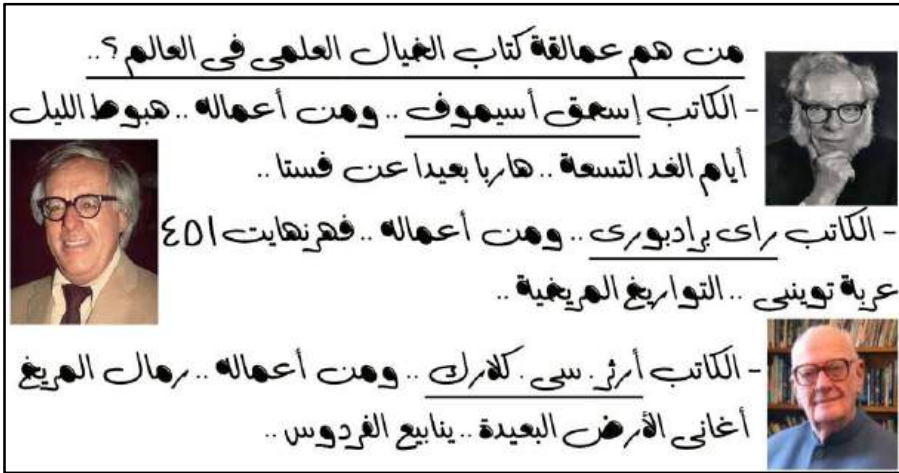 من هم عمالقة كتاب الخيال العلمى فى العالم ؟..
- الكاتب إسحق أسيموف .. ومن أعماله .. هبوط الليل
أيام الغد التسعة .. هاربا بعيدا عن فستا ..
- الكاتب راى برادبورى .. ومن أعماله .. فهرنهايت ٤٥١
عربة توينبى .. التواريخ المريخية ..
- الكاتب أرثر . سى . كلارك .. ومن أعماله .. رمال المريخ
أغانى الأرض البعيدة .. ينابيع الفردوس ..